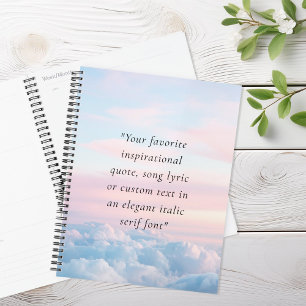 "Your favorite
inspirational
quote, song lyric
or custom text in
an elegant italic
serif font"